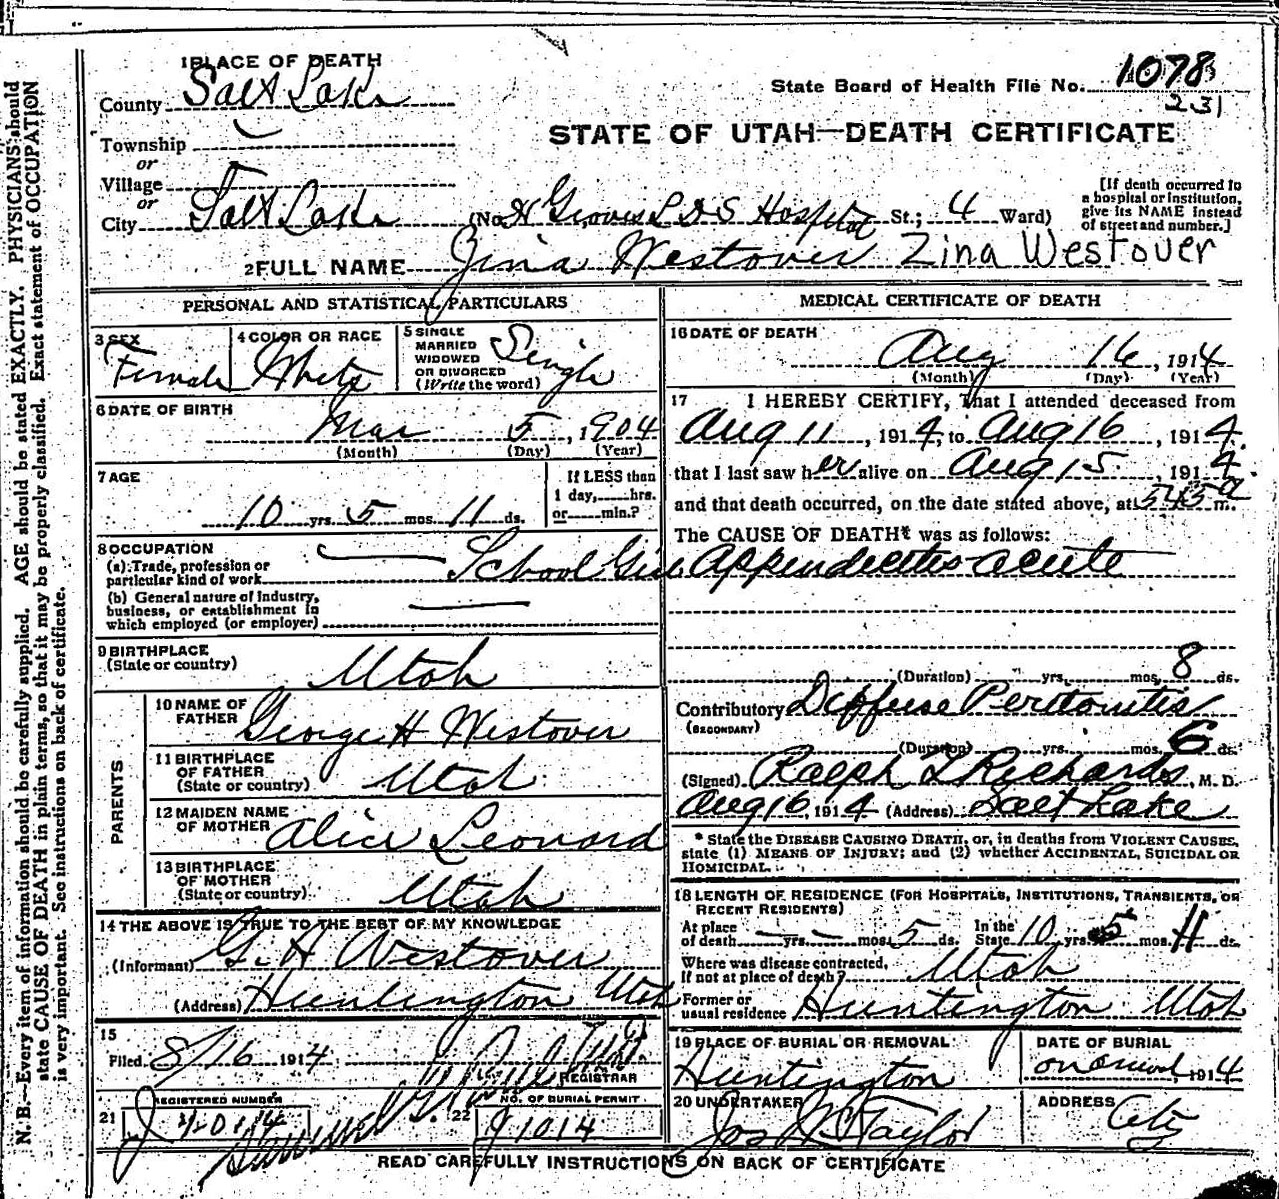 1 PLACE OF DEATH
County Salt Lake
State Board of Health File No. 1078
231
Township
or
Village
or
City Salt Lake (No. H Groves L D S Hospital St.; 4 Ward)
STATE OF UTAH—DEATH CERTIFICATE
[If death occurred in
a hospital or institution,
give its NAME instead
of street and number.]
2 FULL NAME Zina Westover Zina Westover
PERSONAL AND STATISTICAL PARTICULARS
3 SEX Female
4 COLOR OR RACE White
5 SINGLE
MARRIED
WIDOWED
OR DIVORCED
(Write the word) Single
6 DATE OF BIRTH
Mar 5, 1904
(Month) (Day) (Year)
7 AGE
10 yrs. 5 mos. 11 ds.
If LESS than
1 day, hrs.
or min.?
8 OCCUPATION
(a) Trade, profession or
particular kind of work School Girl
(b) General nature of industry,
business, or establishment in
which employed (or employer)
9 BIRTHPLACE
(State or country) Utah
PARENTS
10 NAME OF
FATHER George H Westover
11 BIRTHPLACE
OF FATHER
(State or country) Utah
12 MAIDEN NAME
OF MOTHER Alice Leonard
13 BIRTHPLACE
OF MOTHER
(State or country) Utah
14 THE ABOVE IS TRUE TO THE BEST OF MY KNOWLEDGE
(Informant) G. H Westover
(Address) Huntington Utah
15
Filed 8/16 1914
REGISTRAR
REGISTERED NUMBER
21
22
NO. OF BURIAL PERMIT
J 1014
MEDICAL CERTIFICATE OF DEATH
16 DATE OF DEATH
Aug 16, 1914
(Month) (Day) (Year)
17 I HEREBY CERTIFY, That I attended deceased from
Aug 11, 1914, to Aug 16, 1914.
that I last saw her alive on Aug 15, 1914.
and that death occurred, on the date stated above, at 545 a m.
The CAUSE OF DEATH* was as follows:
Appendicitis acute
(Duration) yrs. mos. 8 ds.
Contributory Diffuse Peritonitis
(SECONDARY)
(Duration) yrs. mos. 6 ds.
(Signed) Ralph T Richards, M. D.
Aug 16, 1914 (Address) Salt Lake
* State the DISEASE CAUSING DEATH, or, in deaths from VIOLENT CAUSES,
state (1) MEANS OF INJURY; and (2) whether ACCIDENTAL, SUICIDAL OR
HOMICIDAL.
18 LENGTH OF RESIDENCE (FOR HOSPITALS, INSTITUTIONS, TRANSIENTS, OR
RECENT RESIDENTS)
At place
of death yrs. mos. 5 ds. In the
State 10 yrs. 5 mos. 11 ds.
Where was disease contracted,
If not at place of death? Utah
Former or
usual residence Huntington Utah
19 PLACE OF BURIAL OR REMOVAL
Huntington
DATE OF BURIAL
1914
20 UNDERTAKER
Jos Wm Taylor
ADDRESS
City
READ CAREFULLY INSTRUCTIONS ON BACK OF CERTIFICATE
N. B.—Every item of information should be carefully supplied. AGE should be stated EXACTLY. PHYSICIANS should
state CAUSE OF DEATH in plain terms, so that it may be properly classified. Exact statement of OCCUPATION
is very important. See instructions on back of certificate.